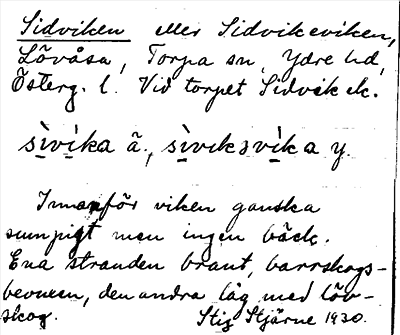 Sidviken eller Sidvikeviken,
Lövåsa, Torpa sn, Ydre hd,
Österg. l. Vid torpet Sidvik
sìvìka ä., sìviksvìka y.
Innanför viken ganska
sumpigt men ingen bäck.
Ena stranden brant, barrskogs-
bevuxen, den andra låg med löv-
skog. Stig Stjärne 1930.